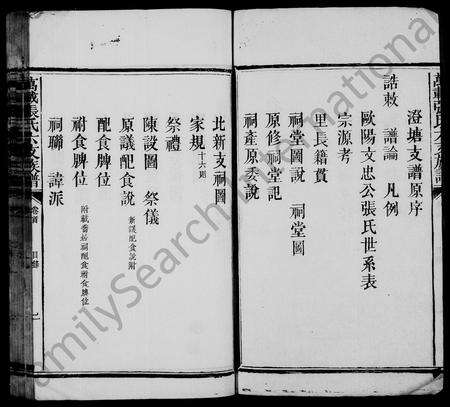 澄塘支譜原序
誥敕 譜論 凡例
歐陽文忠公張氏世系表
宗源考
里長籍貫
祠堂圖說 祠堂圖
原修祠堂記
祠產原委說
北新支祠圖
家規十六則
祭禮
陳設圖 祭儀
原議配食說 新議配食說附
配食牌位
祔食牌位
祠聯 諱派
萬載張氏六支族譜 卷首 目錄
FamilySearch International